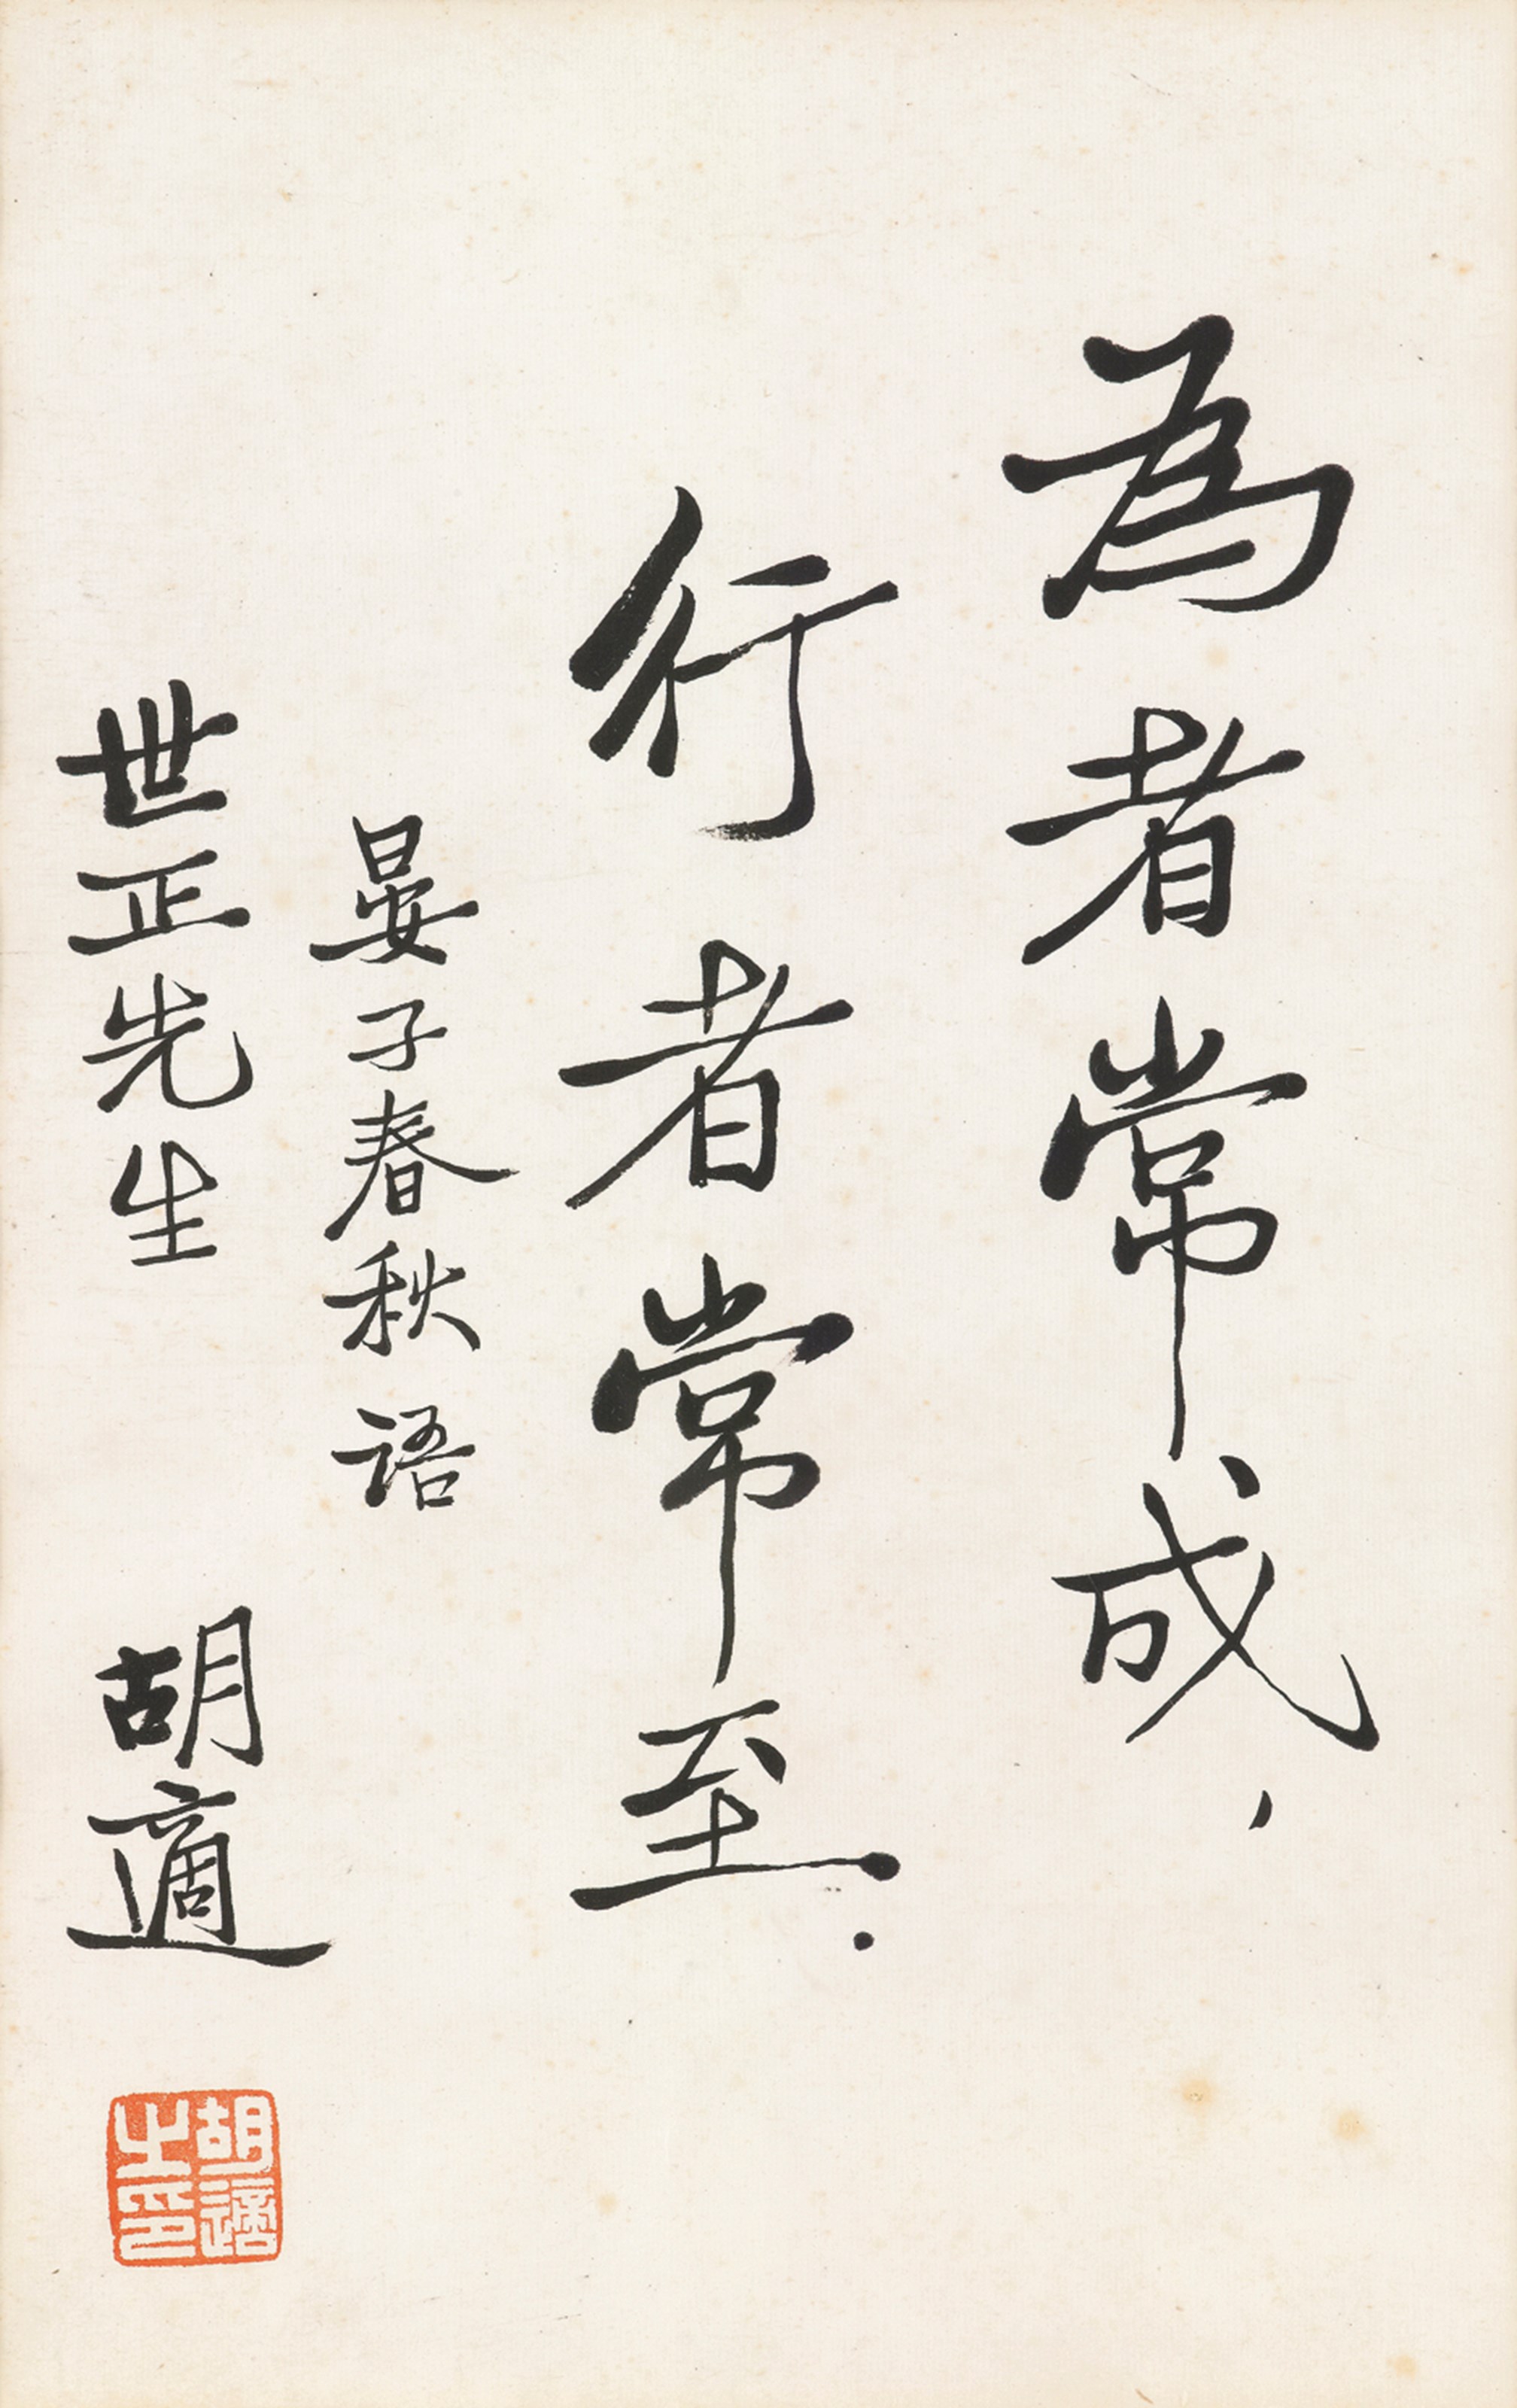 為者常成，
行者常至．
晏子春秋語
世正先生　胡適
胡適之印